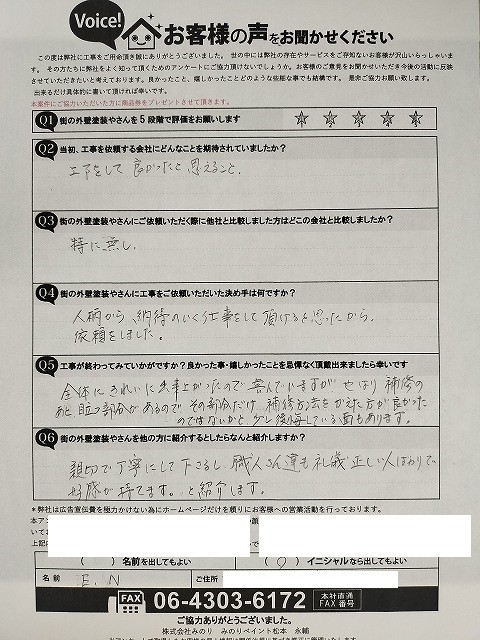 Voice!
お客様の声をお聞かせください
この度は弊社に工事をご用命頂き誠にありがとうございました。世の中には弊社の存在やサービスをご存知ないお客様が沢山いらっしゃいま
す。その方たちに弊社をよく知って頂くためのアンケートにご協力頂けないでしょうか。お客様のご意見をお聞かせいただき今後の活動に反映
させていただきたいと考えております。良かったこと、嬉しかったことどのような些細な事でも結構です。是非ご協力お願い致します。
出来るだけ具体的に書いて頂ければ幸いです。
本案件にご協力いただいた方に商品券をプレゼントさせて頂きます。
Q1 街の外壁塗装やさんを5段階で評価をお願いします
Q2 当初、工事を依頼する会社にどんなことを期待されていましたか?
工事をして良かったと思えること。
Q3 街の外壁塗装やさんにご依頼いただく際に他社と比較しました方はどこの会社と比較しましたか?
特に無し。
Q4 街の外壁塗装やさんに工事をご依頼いただいた決め手は何ですか?
人柄から、納得のいく仕事をして頂けると思ったから。
依頼をしました。
Q5 工事が終わってみていかがですか?良かった事・嬉しかったことを忌憚なく頂戴出来ましたら幸いです
全体にきれいに出来上がったので喜んでいますが やはり補修の
あと目立つ部分があるのでその部分だけ 補修方法をかえた方が良かった
のではないかと、少し後悔している面もあります。
Q6 街の外壁塗装やさんを他の方に紹介するとしたらなんと紹介しますか?
親切で丁寧にして下さるし、職人さん達も礼儀正しい人ばかりで
好感が持てます。と紹介します。
*弊社は広告宣伝費を極力かけない為にホームページだけを頼りにお客様への営業活動を行っております。
本ア
いて
上記
( )名前を出してもよい (○)イニシャルなら出してもよい
名前 E.N ご住所
FAX 06-4303-6172 本社直通 FAX番号
ご協力ありがとうございました。
株式会社みのり みのりペイント松本 永輔